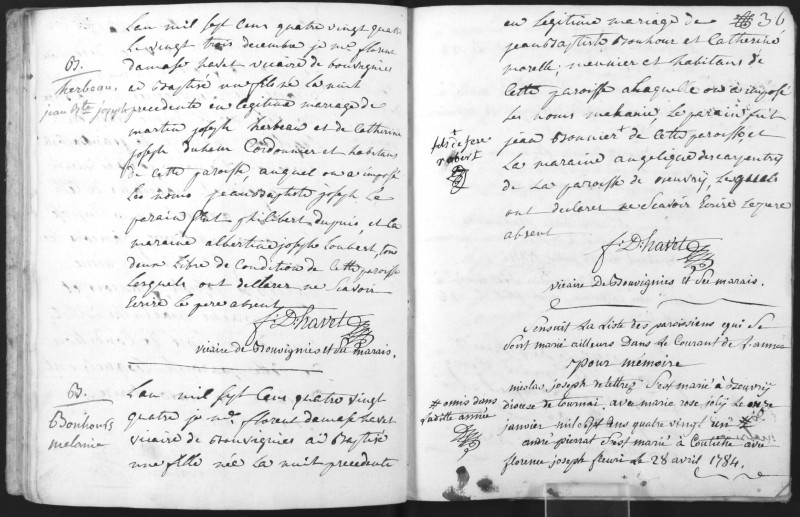 B.
Herbeau
jean Bte joseph
L'an mil sept Cens quatre vingt quatre
Le vingt trois decembre je me florent
damase havet vicaire de bouvignies
ai Baptisé un fils né la nuit
precedente en legitime mariage de
martin joseph herbeau et de Catherine
joseph duhem Cordonnier et habitans
de Cette paroisse, auquel on a imposé
les noms jean Baptiste joseph Le
parain fut philibert dupuis, et la
maraine albertine josephe Loubert, tous
deux Libre de Condition de Cette paroisse
Lesquels ont declarer ne Scavoir
Ecrire Le pere absent
f. D. havet
vicaire de Bouvignies et du marais.
B.
Bonhours
melanie
L'an mil sept Cens quatre vingt
quatre je me florent damase havet
vicaire de Bouvignies ai Baptisé
une fille née La nuit precedente
36
en legitime mariage de
jean Baptiste Bonhour et Catherine
morelle, meunier et habitans de
Cette paroisse a laquelle on a imposé
Les noms melanie Le parain fut
jean Bonnier de Cette paroisse, et
La maraine angelique descarpentry
de La paroisse de beuvry, Lesquels
ont declarer ne Scavoir Ecrire Le pere
absent
f. D. havet
vicaire de Bouvignies et du marais.
Sensuit La Liste des paroissiens qui Se
Sont marié ailleurs Dans Le Courant de L'année
pour mémoire
nicolas joseph deletrez S'est marié à Beuvry
diocese de tournai avec marie rose joly Le
janvier mil sept Cens quatre vingt un
# omis dans
laditte année
andré pierrat S'est marié à Coutiche avec
florence joseph fleuri Le 28 avril 1784.